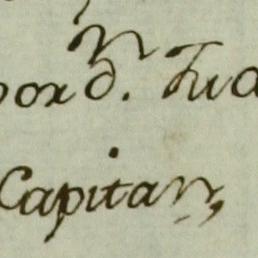 por d.ⁿ Jua
Capitan,